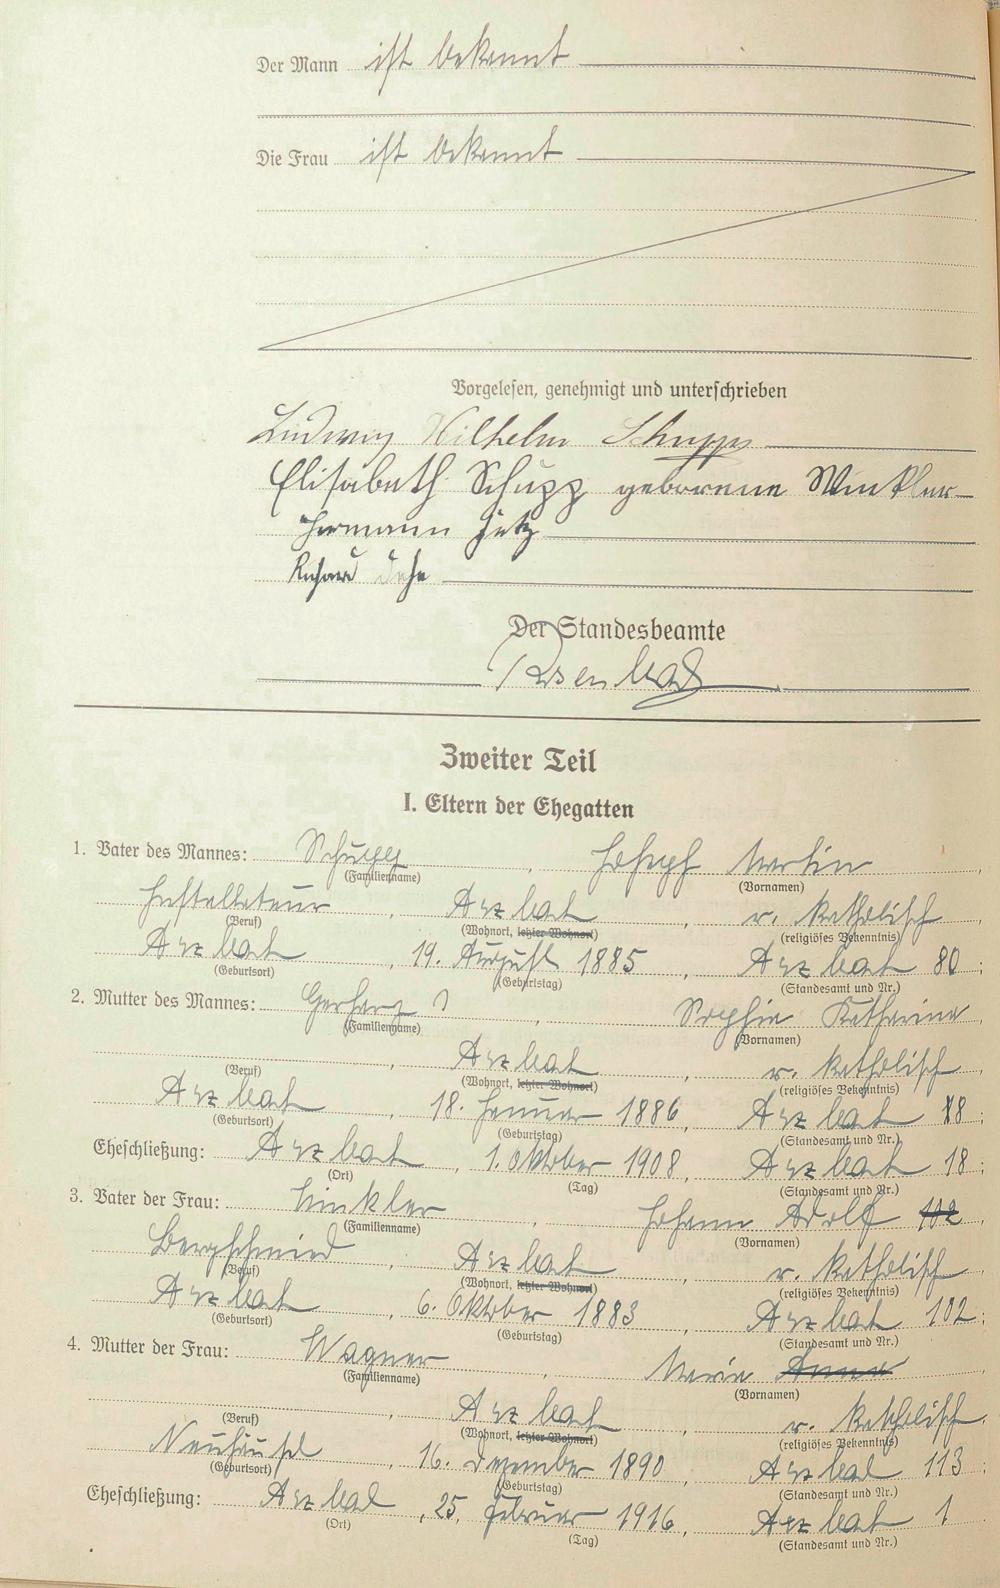 Der Mann ist bekannt
Die Frau ist bekannt
Vorgelesen, genehmigt und unterschrieben
Ludwig Wilhelm Schupp
Elisabeth Schupp geborene Winkler
Hermann
Richard
Der Standesbeamte
Zweiter Teil
I. Eltern der Ehegatten
1. Vater des Mannes: Schupp, Joseph Martin,
(Familienname) (Vornamen)
Installateur, Arzbach, r. katholisch,
(Beruf) (Wohnort, letzter Wohnort) (religiöses Bekenntnis)
Arzbach, 19. August 1885, Arzbach 80;
(Geburtsort) (Geburtstag) (Standesamt und Nr.)
2. Mutter des Mannes: Gerharz, Sophie Katharina,
(Familienname) (Vornamen)
, Arzbach, r. katholisch,
(Beruf) (Wohnort, letzter Wohnort) (religiöses Bekenntnis)
Arzbach, 18. Januar 1886, Arzbach 8;
(Geburtsort) (Geburtstag) (Standesamt und Nr.)
Eheschließung: Arzbach, 1. Oktober 1908, Arzbach 18;
(Ort) (Tag) (Standesamt und Nr.)
3. Vater der Frau: Winkler, Johann Adolf 102,
(Familienname) (Vornamen)
Bergschmied, Arzbach, r. katholisch,
(Beruf) (Wohnort, letzter Wohnort) (religiöses Bekenntnis)
Arzbach, 6. Oktober 1883, Arzbach 102;
(Geburtsort) (Geburtstag) (Standesamt und Nr.)
4. Mutter der Frau: Wagner, Maria Anna,
(Familienname) (Vornamen)
, Arzbach, r. katholisch,
(Beruf) (Wohnort, letzter Wohnort) (religiöses Bekenntnis)
Neuhäusel, 16. Dezember 1890, Arzbach 113;
(Geburtsort) (Geburtstag) (Standesamt und Nr.)
Eheschließung: Arzbach, 25. Februar 1916, Arzbach 1
(Ort) (Tag) (Standesamt und Nr.)